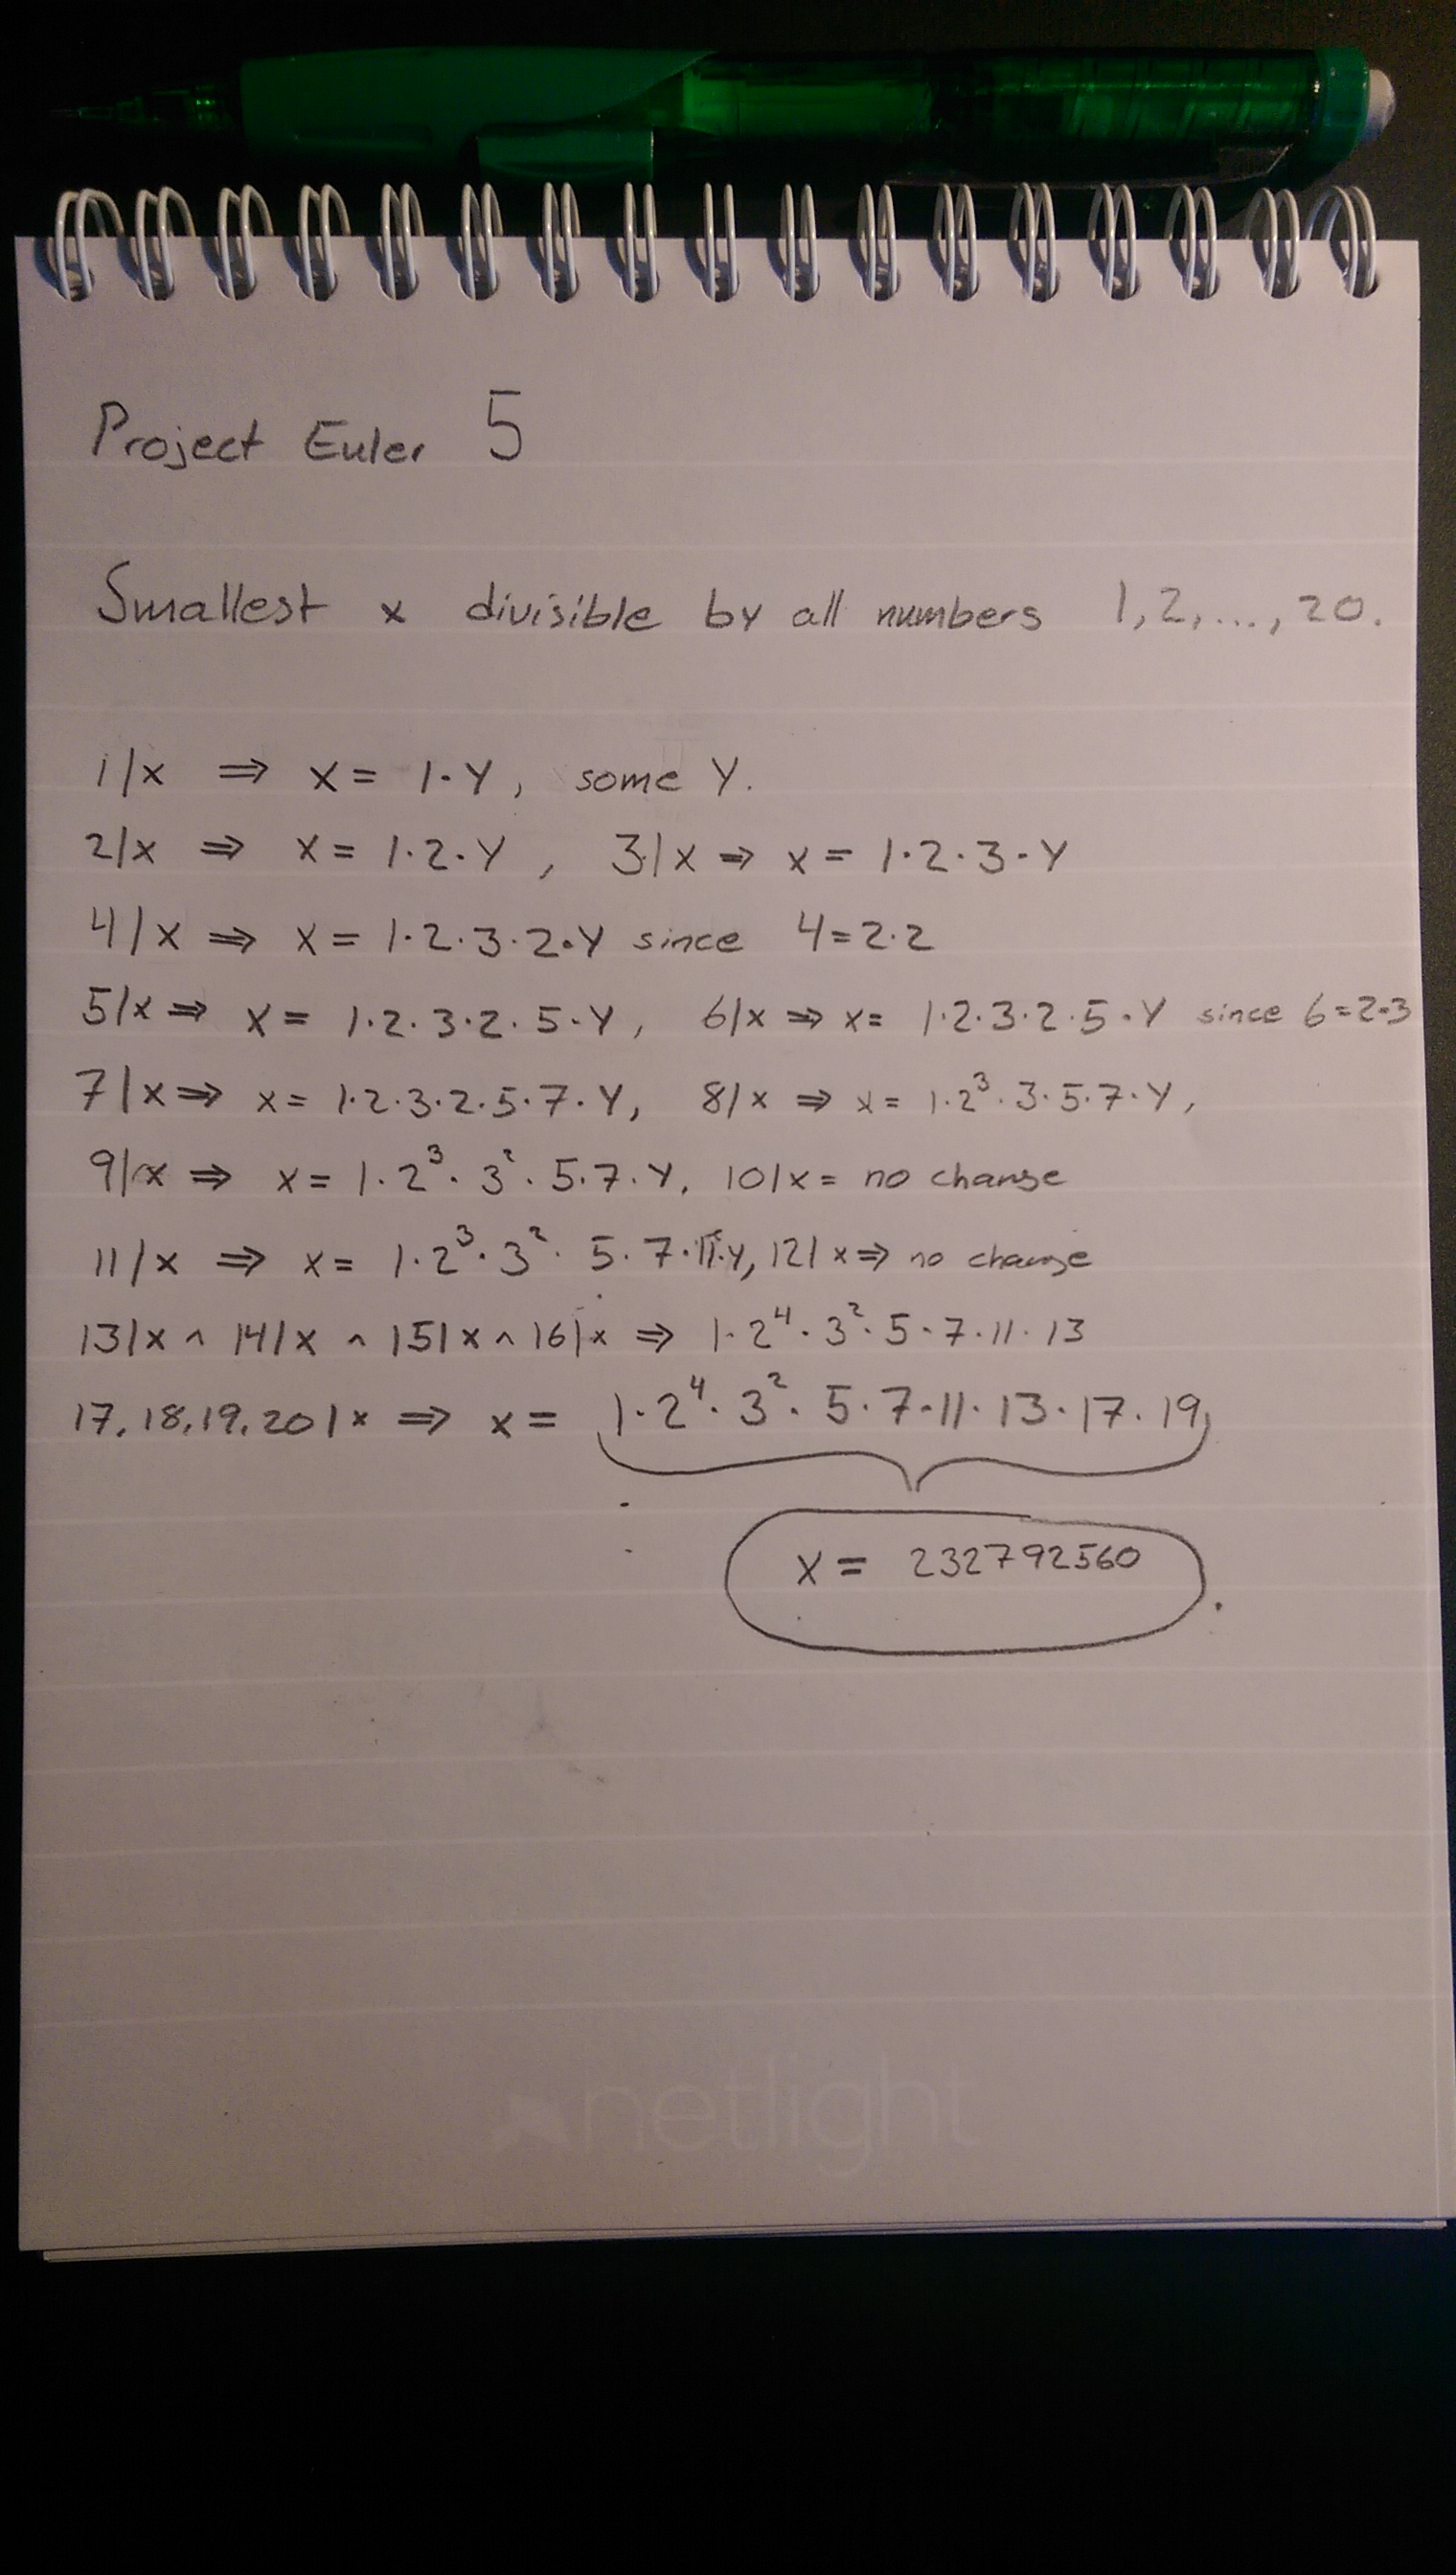 Project Euler 5
Smallest x divisible by all numbers 1,2,...,20.
1|x ⇒ x = 1·y, some y.
2|x ⇒ x = 1·2·y, 3|x ⇒ x = 1·2·3·y
4|x ⇒ x = 1·2·3·2·y since 4=2·2
5|x ⇒ x = 1·2·3·2·5·y, 6|x ⇒ x = 1·2·3·2·5·y since 6=2·3
7|x ⇒ x = 1·2·3·2·5·7·y, 8|x ⇒ x = 1·2³·3·5·7·y,
9|x ⇒ x = 1·2³·3²·5·7·y, 10|x = no change
11|x ⇒ x = 1·2³·3²·5·7·11·y, 12|x ⇒ no change
13|x ^ 14|x ^ 15|x ^ 16|x ⇒ 1·2⁴·3²·5·7·11·13
17,18,19,20|x ⇒ x = 1·2⁴·3²·5·7·11·13·17·19
x = 232792560
netlight